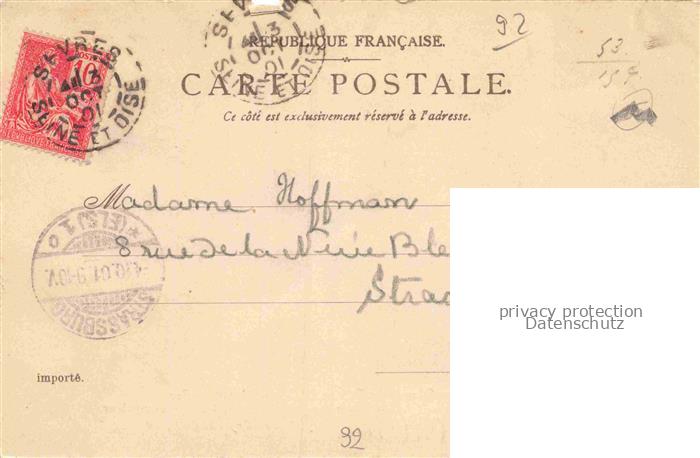 92
53
RÉPUBLIQUE FRANÇAISE.
CARTE POSTALE.
Ce côté est exclusivement réservé à l'adresse.
SEVRES
SEINE ET OISE
10
Madame Hoffman
8 rue de la
STRASSBURG
(ELS.) 1
4.10.01.9-10V.
privacy protection
Datenschutz
importé.
92